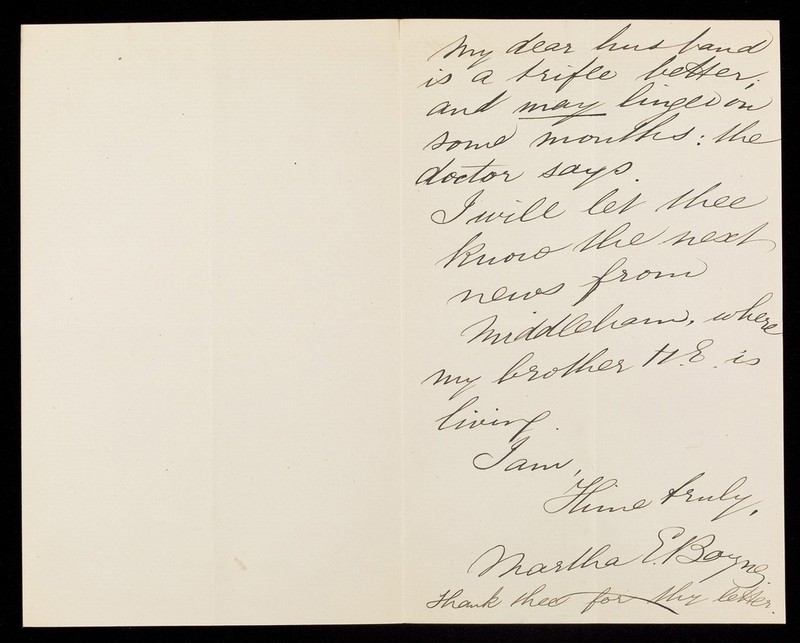 My dear husband
is a trifle better;
and may linger on
some months: the
doctor says.
I will let thee
know the next
news from
Middleham, where
my brother H.E. is
living.
I am,
Thine truly,
Martha E. Bayne.
Thank thee for thy letter.